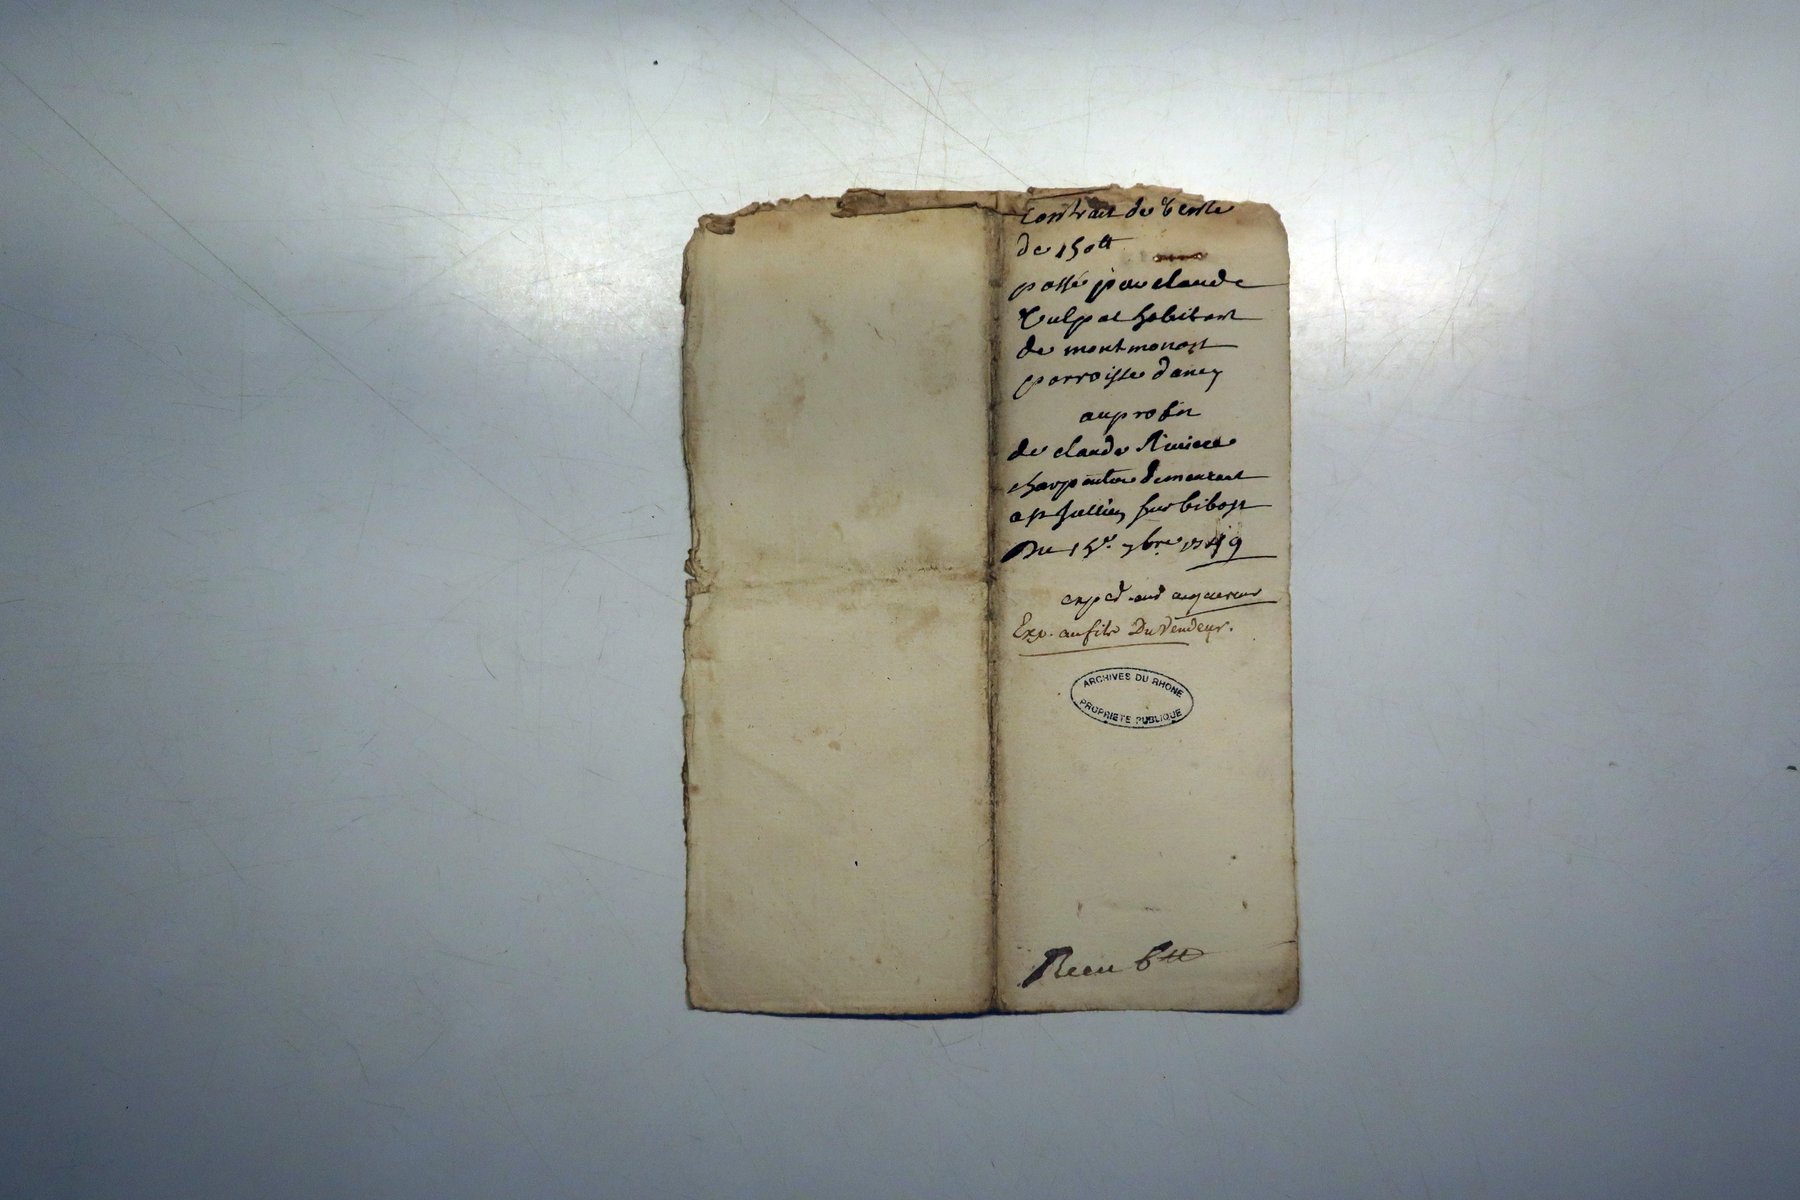 Contrat de vente
de 150tt
passé par claude
Vulpat habitant
de montmonost
parroisse dancy
au profit
de claude Riviere
charpentier demeurant
a st Jullien sur bibost
Du 15e. 7bre. 1749
exped. aud acquereur
Exp. au fils Du Vendeur.
ARCHIVES DU RHONE
PROPRIETE PUBLIQUE
Receu 6tt